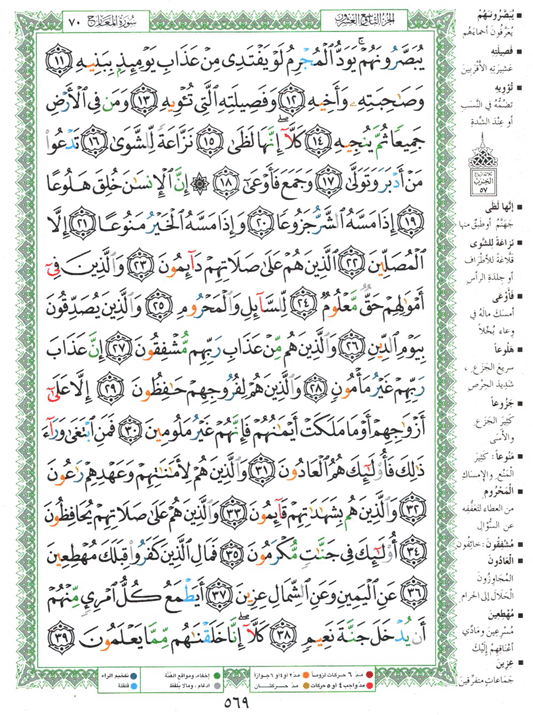 سورة المعارج ٧٠
الجزء التاسع والعشرون
يُبَصَّرُونَهُمْ ۚ يَوَدُّ الْمُجْرِمُ لَوْ يَفْتَدِي مِنْ عَذَابِ يَوْمِئِذٍ بِبَنِيهِ ١١
وَصَاحِبَتِهِ وَأَخِيهِ ١٢ وَفَصِيلَتِهِ الَّتِي تُـْٔوِيهِ ١٣ وَمَن فِي الْأَرْضِ
جَمِيعًا ثُمَّ يُنجِيهِ ١٤ كَلَّا ۖ إِنَّهَا لَظَىٰ ١٥ نَزَّاعَةً لِّلشَّوَىٰ ١٦ تَدْعُوا
مَنْ أَدْبَرَ وَتَوَلَّىٰ ١٧ وَجَمَعَ فَأَوْعَىٰ ١٨ ۞ إِنَّ الْإِنسَانَ خُلِقَ هَلُوعًا
١٩ إِذَا مَسَّهُ الشَّرُّ جَزُوعًا ٢٠ وَإِذَا مَسَّهُ الْخَيْرُ مَنُوعًا ٢١ إِلَّا
الْمُصَلِّينَ ٢٢ الَّذِينَ هُمْ عَلَىٰ صَلَاتِهِمْ دَائِمُونَ ٢٣ وَالَّذِينَ فِي
أَمْوَالِهِمْ حَقٌّ مَّعْلُومٌ ٢٤ لِّلسَّائِلِ وَالْمَحْرُومِ ٢٥ وَالَّذِينَ يُصَدِّقُونَ
بِيَوْمِ الدِّينِ ٢٦ وَالَّذِينَ هُم مِّنْ عَذَابِ رَبِّهِم مُّشْفِقُونَ ٢٧ إِنَّ عَذَابَ
رَبِّهِمْ غَيْرُ مَأْمُونٍ ٢٨ وَالَّذِينَ هُمْ لِفُرُوجِهِمْ حَافِظُونَ ٢٩ إِلَّا عَلَىٰ
أَزْوَاجِهِمْ أَوْ مَا مَلَكَتْ أَيْمَانُهُمْ فَإِنَّهُمْ غَيْرُ مَلُومِينَ ٣٠ فَمَنِ ابْتَغَىٰ وَرَاءَ
ذَٰلِكَ فَأُولَٰئِكَ هُمُ الْعَادُونَ ٣١ وَالَّذِينَ هُمْ لِأَمَانَاتِهِمْ وَعَهْدِهِمْ رَاعُونَ
٣٢ وَالَّذِينَ هُم بِشَهَادَاتِهِمْ قَائِمُونَ ٣٣ وَالَّذِينَ هُمْ عَلَىٰ صَلَاتِهِمْ يُحَافِظُونَ
٣٤ أُولَٰئِكَ فِي جَنَّاتٍ مُّكْرَمُونَ ٣٥ فَمَالِ الَّذِينَ كَفَرُوا قِبَلَكَ مُهْطِعِينَ
٣٦ عَنِ الْيَمِينِ وَعَنِ الشِّمَالِ عِزِينَ ٣٧ أَيَطْمَعُ كُلُّ امْرِئٍ مِّنْهُمْ
أَن يُدْخَلَ جَنَّةَ نَعِيمٍ ٣٨ كَلَّا ۖ إِنَّا خَلَقْنَاهُم مِّمَّا يَعْلَمُونَ ٣٩
■ يُبَصَّرُونَهُمْ
يُعَرَّفُونَ أحماءَهُم
■ فَصِيلَتِهِ
عَشِيرَتِهِ الأَقْرَبِينَ
■ تُؤْوِيهِ
تَضُمُّهُ في النَّسَبِ
أو عِنْدَ الشِّدَّةِ
الحزب
٥٧
■ إنَّها لَظَى
جَهَنَّمُ أو طَبَقٌ منها
■ نَزَّاعَةً للشَّوى
قَلَّاعَةً للأَطْرَافِ
أو جِلدَةِ الرأسِ
■ فَأَوْعَى
أمسَكَ مالَهُ في
وِعاءٍ بُخْلاً
■ هَلُوعاً
سريعَ الجَزَعِ ،
شديدَ الحِرْصِ
■ جَزُوعاً
كثيرَ الجَزَعِ
والأَسَى
■ مَنُوعاً : كثيرَ
المَنْعِ . والإمساكِ
■ المَحْرُوم
من العطاءِ لتعفُّفِهِ
عن السُّؤالِ
■ مُشْفِقُونَ : خائِفُون
■ العَادُونَ
المُجَاوِزُونَ
الحلالَ إلى الحرامِ
■ مُهْطِعِينَ
مُسْرعينَ ومادِّي
أعناقِهِمْ إليْكَ
■ عِزِينَ
جَمَاعَاتٍ متفرِّقينَ
مدّ ٦ حركات لزوماً
مدّ ٢ أو ٤ أو ٦ جوازاً
مدّ واجب ٤ أو ٥ حركات
مدّ حركتان
إخفاء، ومواقع الغُنَّة
ادغام، وما لا يُلفظ
تفخيم الراء
قلقلة
٥٦٩